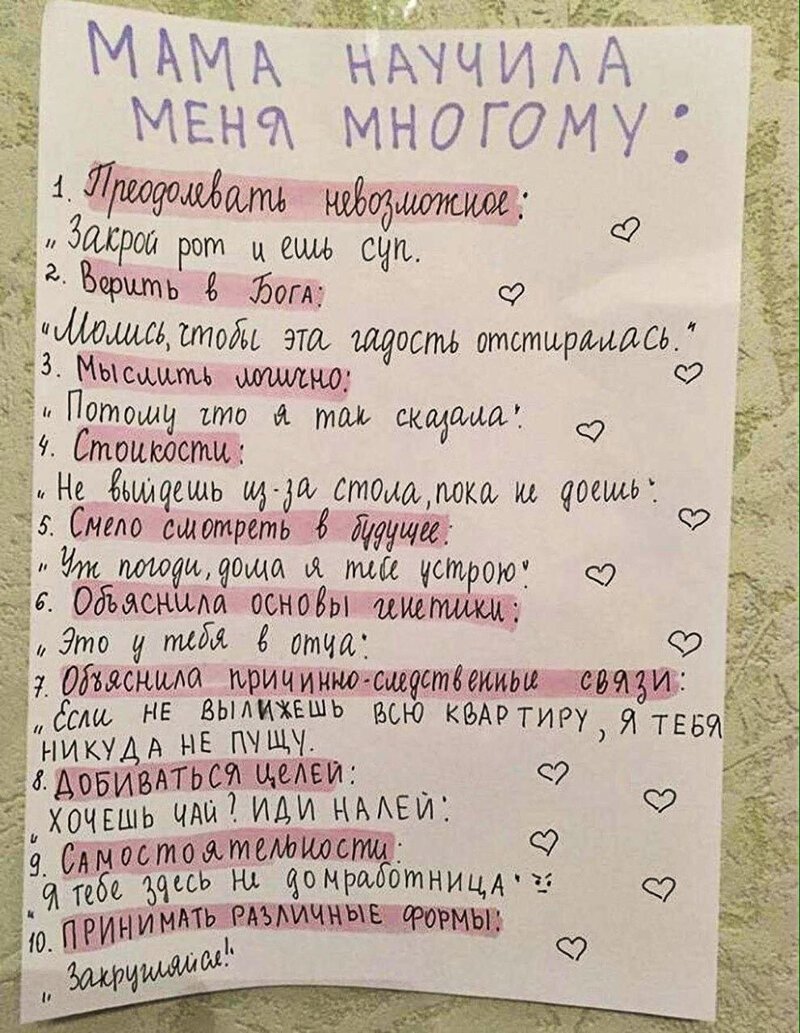 МАМА НАУЧИЛА
МЕНЯ МНОГОМУ:
1. Преодолевать невозможное:
"Закрой рот и ешь суп.
2. Верить в Бога:
"Молись, чтобы эта гадость отстиралась."
3. Мыслить логично:
"Потому что я так сказала"
4. Стойкости:
"Не выйдешь из-за стола, пока не доешь"
5. Смело смотреть в будущее:
"Уж погоди, дома я тебе устрою"
6. Объяснила основы генетики:
"Это у тебя в отца"
7. Объяснила причинно-следственные связи:
"Если не вылижешь всю квартиру, я тебя
никуда не пущу.
8. Добиваться целей:
"Хочешь чай? Иди налей"
9. Самостоятельности:
"Я тебе здесь не домработница"
10. Принимать различные формы:
"Закругляйся!"